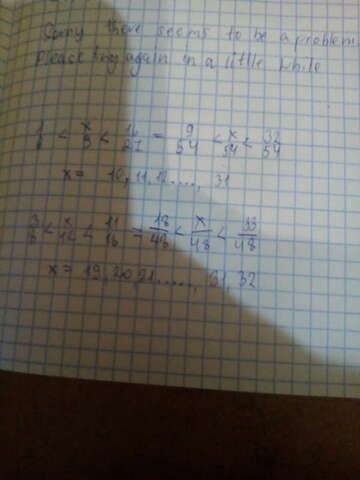 Sorry there seems to be a problem
Please try again in a little while
1/6 < x/9 < 16/27 = 9/54 < x/54 < 32/54
x = 10, 11, 12....., 31
3/8 < x/12 < 11/16 = 18/48 < x/48 < 33/48
x = 19, 20, 21......, 31, 32